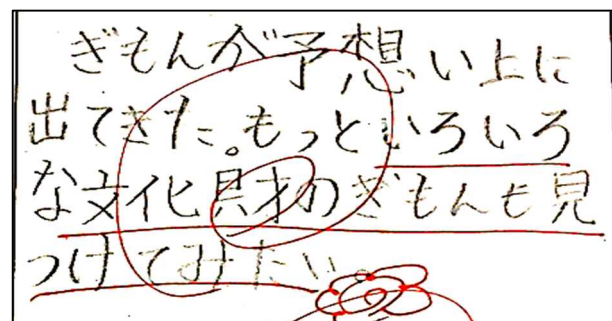 ぎもんが予想い上に
出てきた。もっといろいろ
な文化財のぎもんも見
つけてみたい。